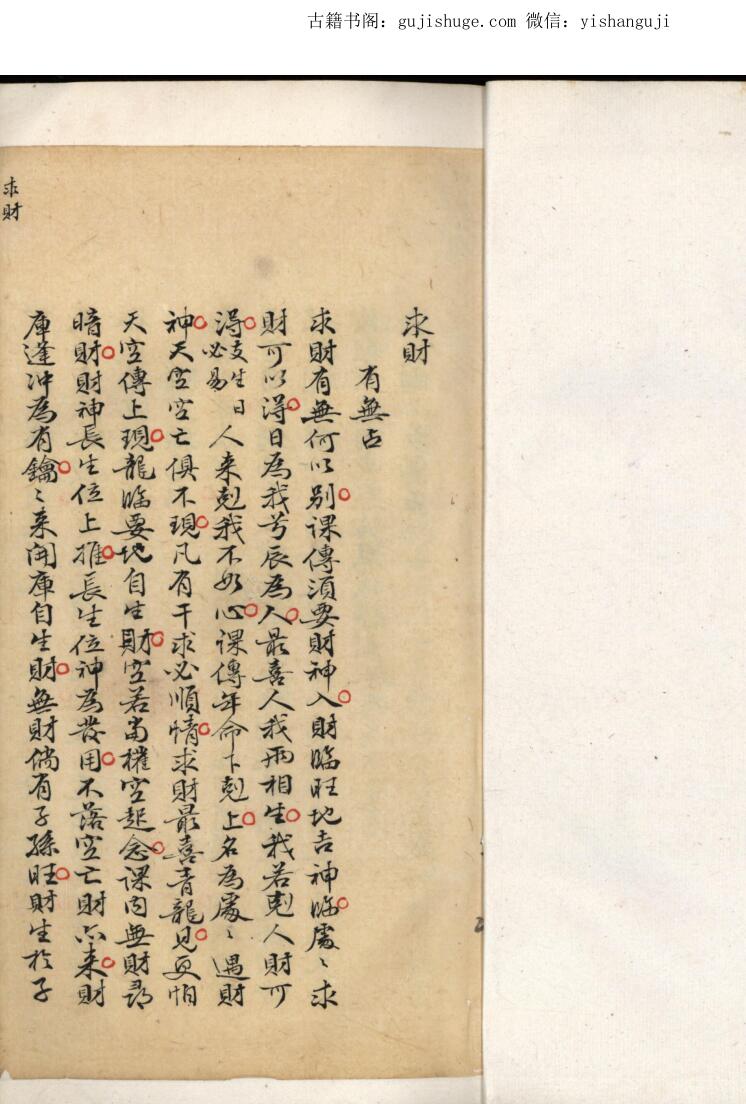 古籍书阁：gujishuge.com 微信：yishanguji
求財
求財
有無占
求財有無何以别課傳須要財神入財臨旺地吉神臨處〻求
財可以得日為我兮辰為人最喜人我兩相生我若剋人財可
得支生日必易人来剋我不如心課傳年命下剋上名為處〻遇財
神天空空亡俱不現凡有干求必順情求財最喜青龍見更怕
天空傳上現龍臨要地自生財空若當權空起念課内無財尋
暗財財神長生位上推長生位神為發用不落空亡財亦来財
庫逢冲為有鑰〻来開庫自生財無財倘有子孫旺財生於子